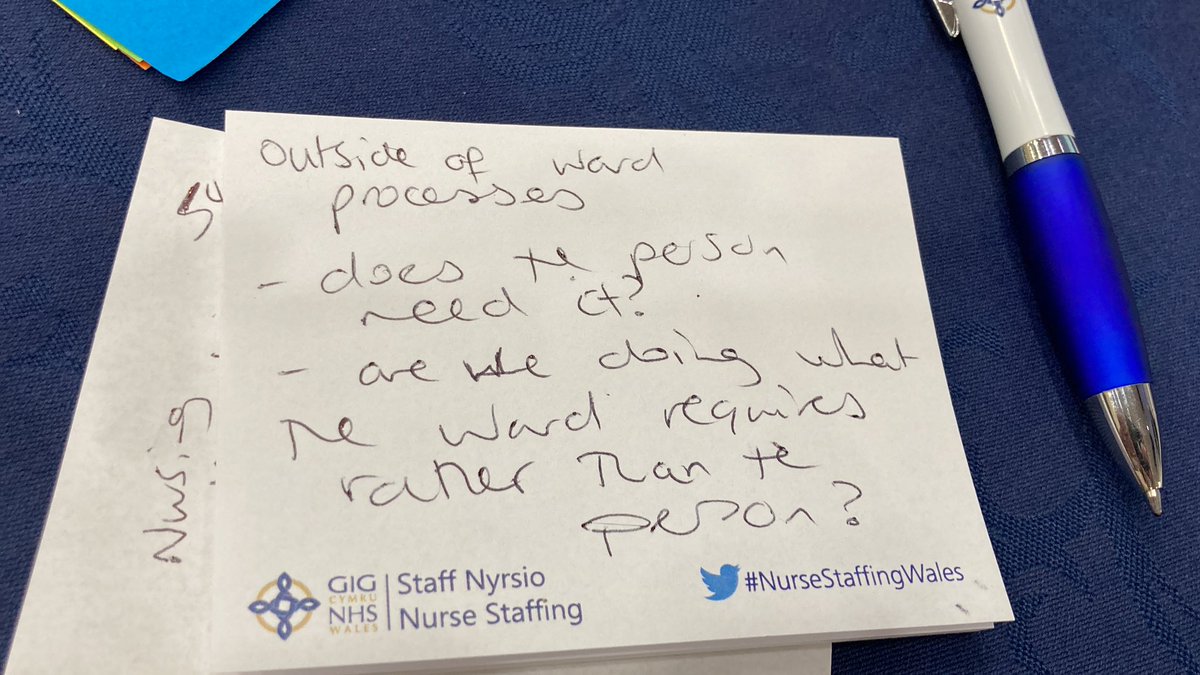 outside of ward
processes
- does the person
need it?
- are we doing what
the ward requires
rather than the
person?
GIG
CYMRU
NHS
WALES
Staff Nyrsio
Nurse Staffing
#NurseStaffingWales